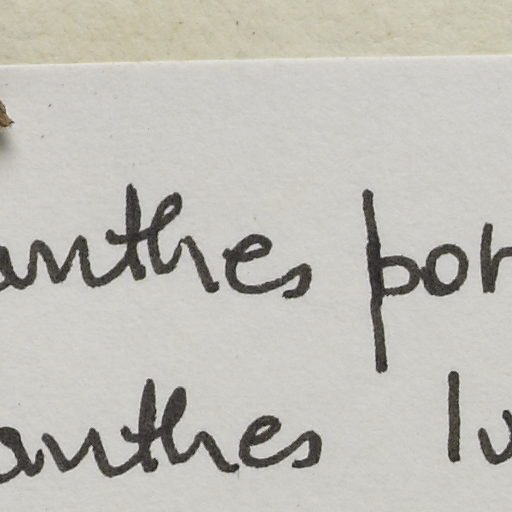 anthes por
anthes lu